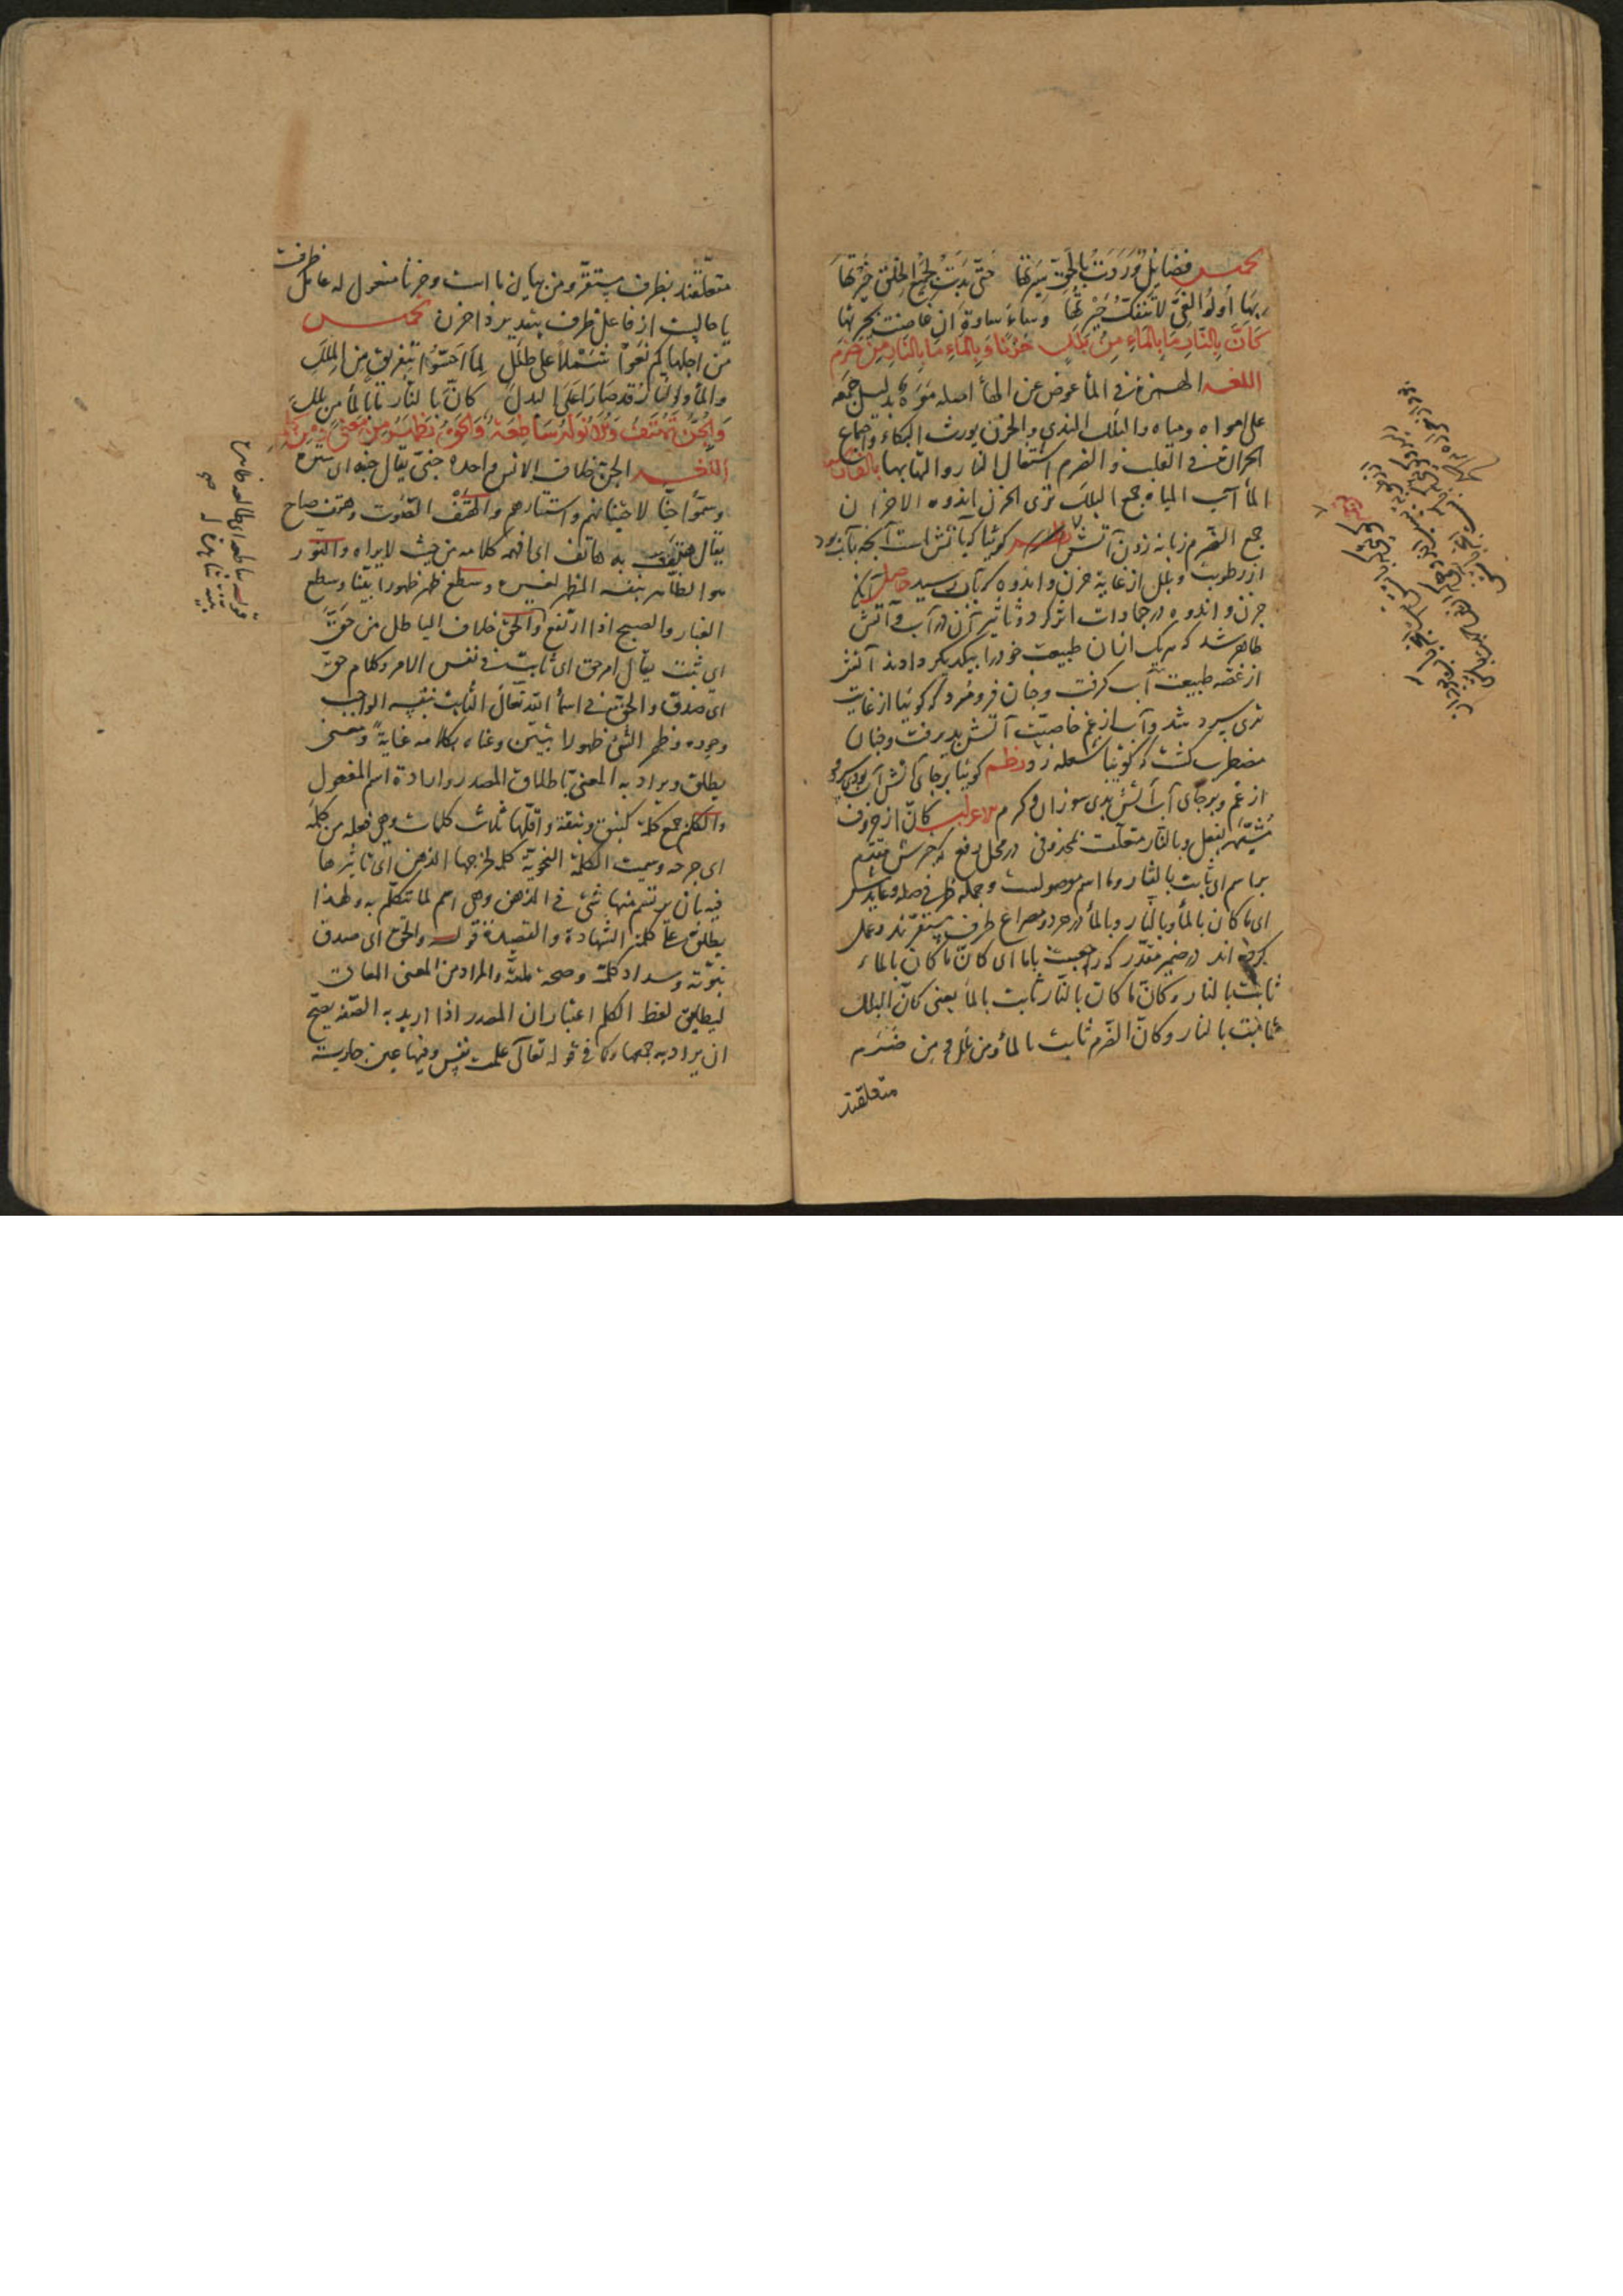 تخميس فضائل وردت بالحق سيرتها حتى بدت لجميع الخلق خيرتها
بها أولو الغي لا تنفك حيرتها وساء ساوة ان غاضت بحيرتها
كَأَنَّ بِالنَّارِ مَا بِالْمَاءِ مِنْ بَلَلٍ حُزْنًا وَبِالْمَاءِ مَا بِالنَّارِ مِنْ ضَرَمِ
اللغة الهمزة في الماء عوض عن الهاء اصله موه بدليل جمعه
على امواه ومياه والبلل الندى والحزن يورث البكاء واجتماع
الحرارة في القلب والضرم اشتعال النار والتهابها بالفارسية
الماء آب المياه جمع البلل تری الحزن اندوه الاحزان
جمع الضرم زبانه زدن آتش كوئيا كبآتش است آنچه بآب بود
از رطوبت وبلل از غایة حزن واندوه كه بآن رسید حاصل آنكه
حزن واندوه در جمادات اثر كرد وتاثیر آن در آب وآتش
ظاهر شد كه هر یک از ایشان طبیعت خود را بیكدیگر دادند آتش
از غصه طبیعت آب گرفت وچنان فرو مرد كه كوئیا از غایت
تری سرد شد وآب از غم خاصیت آتش پذیرفت وچنان
مضطرب گشت كه كوئیا شعله زد نظم كوئیا بر جای آتش آب بودی سرد
از غم وبر جای آب آتش بدی سوزان وگرم الاعراب كان از حروف
مشبهه بفعل وبالنار متعلقست بمحذوفی در محل رفع كه خبرش مقدم
بر اسم ای ثابت بالنار وما اسم موصولست وجمله ظرفی صله وعایدش
ای ما كان بالماء وبالنار وبالماء در هر دو مصراع ظرف مستقرند وعمل
كرده اند در ضمیر مقدر كه راجعست باما ای كان ما كان بالماء
ثابت بالنار وكان ما كان بالنار ثابت بالماء یعنی كان البلل
ثابت بالنار وكان الضرم ثابت بالماء ومن بلل ومن ضرم
متعلقند
متعلقند بظرف مستقر ومن بیان ما است وحزنا مفعول له عامل ظرفست
یا حالیست از فاعل ظرف بتقدیر ذا حزن تخميس
من اجلها كم نعوا شملا على طلل لما احتووا بتفريق من الملل
والماء والنار قد صارا على البدل كان بالنار ما بالماء من بلل
وَالْجِنُّ تَهْتِفُ وَالْأَنْوَارُ سَاطِعَةٌ وَالْحَقُّ يَظْهَرُ مِنْ مَعْنًى وَمِنْ كَلِمِ
اللغة الجن خلاف الانس واحده جنى يقال جنه اى ستره
وسموا جنا لاختفائهم واستتارهم والهتف الصوت وهتف صاح
يقال هتف به هاتف اى افهمه كلامه من حيث لا يراه والنور
هو الظاهر بنفسه المظهر لغيره وسطع ظهر ظهورا بينا وسطع
الغبار والصبح اذا ارتفع والحق خلاف الباطل من حق
اى ثبت يقال امر حق اى ثابت فى نفس الامر وكلام حق
اى صدق والحق فى اسماء الله تعالى الثابت بنفسه الواجب
وجوده وظهر الشئ ظهورا تبين وعناه بكلامه عناية ومعنى
يطلق ويراد به المعنى باطلاق المصدر وارادة اسم المفعول
والكلم جمع كلمة كنبق ونبقة واقلها ثلاث كلمات وهى فعله من كلمه
اى جرحه وسميت الكلمة النحوية كلمة لجرحها الذهن اى تاثيرها
فيه بان يرتسم منها شئ فى الذهن وهى اسم لما تتكلم به ولهذا
يطلق على كلمة الشهادة والقصيدة قوله والحق اى صدق
نبوته وسداد كلمته وصحة ملته والمراد من المعنى المعانى
ليطابق لفظ الكلم اعتبار ان المصدر اذا اريد به الصفة يصح
ان يراد به جمعها وكما فى قوله تعالى علمت نفس وفيها عين جارية